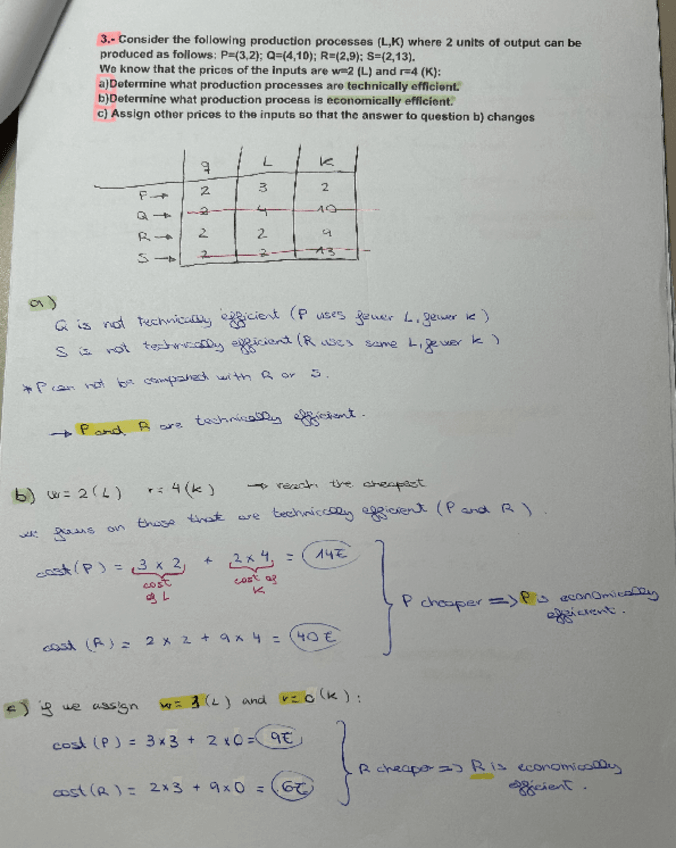 3.- Consider the following production processes (L,K) where 2 units of output can be
produced as follows: P=(3,2); Q=(4,10); R=(2,9); S=(2,13).
We know that the prices of the inputs are w=2 (L) and r=4 (K):
a)Determine what production processes are technically efficient.
b)Determine what production process is economically efficient.
c) Assign other prices to the inputs so that the answer to question b) changes
q L K
P → 2 3 2
Q → 2 4 10
R → 2 2 9
S → 2 2 13
a)
Q is not technically efficient (P uses fewer L, fewer K)
S is not technically efficient (R uses same L, fewer K)
* P can not be compared with R or S.
→ P and R are technically efficient.
b) w = 2(L) r = 4(K) → reach the cheapest
we focus on those that are technically efficient (P and R).
cost (P) = 3 x 2 + 2 x 4 = 14€
cost of L cost of K
P cheaper => P is economically efficient.
cost (R) = 2 x 2 + 9 x 4 = 40 €
c) if we assign w = 3 (L) and r = 0 (K):
cost (P) = 3x3 + 2x0 = 9€
R cheaper => R is economically efficient.
cost (R) = 2x3 + 9x0 = 6€